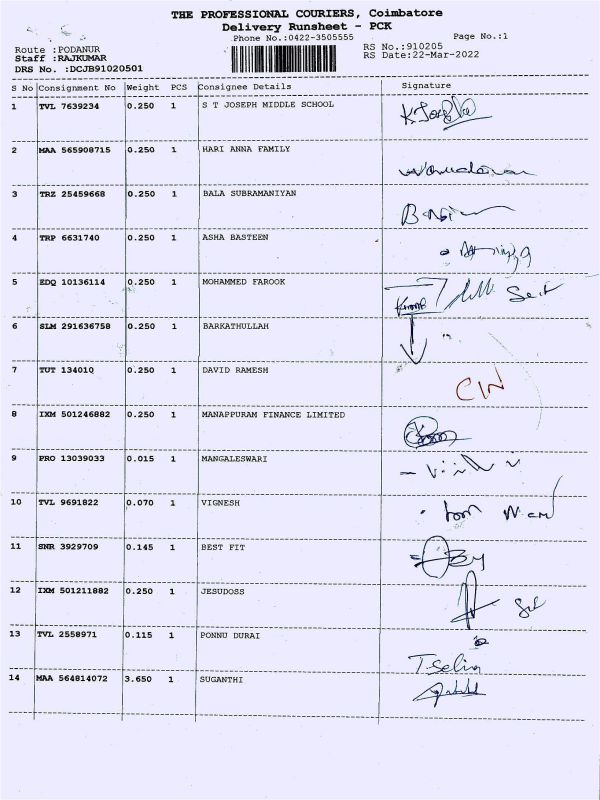 THE PROFESSIONAL COURIERS, Coimbatore
Delivery Runsheet - PCK
Phone No.:0422-3505555 Page No.:1
Route :PODANUR RS No.:910205
Staff :RAJKUMAR RS Date:22-Mar-2022
DRS No. :DCJB91020501
S No Consignment No Weight PCS Consignee Details Signature
1 TVL 7639234 0.250 1 S T JOSEPH MIDDLE SCHOOL
2 MAA 565908715 0.250 1 HARI ANNA FAMILY
3 TRZ 25459668 0.250 1 BALA SUBRAMANIYAN
4 TRP 6631740 0.250 1 ASHA BASTEEN
5 EDQ 10136114 0.250 1 MOHAMMED FAROOK
6 SLM 291636758 0.250 1 BARKATHULLAH
7 TUT 13401Q 0.250 1 DAVID RAMESH
8 IXM 501246882 0.250 1 MANAPPURAM FINANCE LIMITED
9 PRO 13039033 0.015 1 MANGALESWARI
10 TVL 9691822 0.070 1 VIGNESH
11 SNR 3929709 0.145 1 BEST FIT
12 IXM 501211882 0.250 1 JESUDOSS
13 TVL 2558971 0.115 1 PONNU DURAI
T.Selin
14 MAA 564814072 3.650 1 SUGANTHI